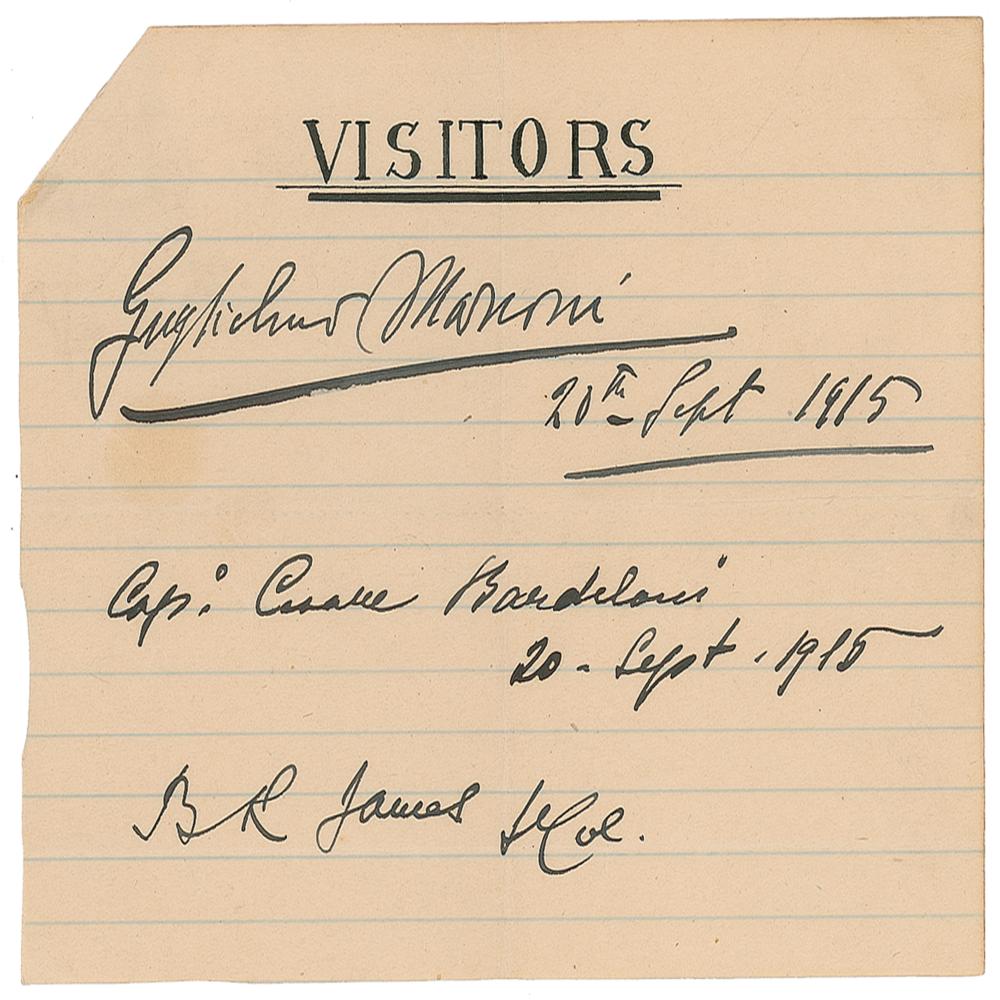 VISITORS
Guglielmo Marconi
20th Sept 1915
Cap: Cesare Bardeloni
20 - Sept. 1915
B R James Lt Col.